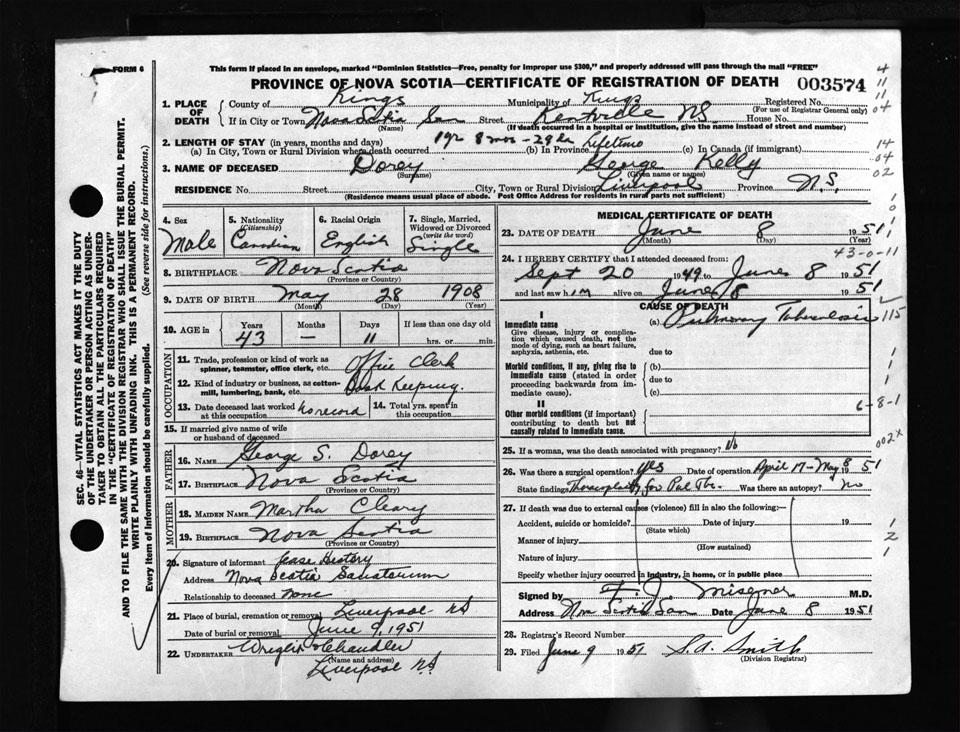 FORM 6
This form if placed in an envelope, marked "Dominion Statistics—Free, penalty for improper use $300," and properly addressed will pass through the mail "FREE"
PROVINCE OF NOVA SCOTIA—CERTIFICATE OF REGISTRATION OF DEATH 003574
1. PLACE OF DEATH County of Kings Municipality of Kings Registered No.
(For use of Registrar General only)
If in City or Town Nova Scotia San Street Kentville NS House No.
(Name) (If death occurred in a hospital or institution, give the name instead of street and number)
2. LENGTH OF STAY (in years, months and days)
(a) In City, Town or Rural Division where death occurred 1 yr 8 mos - 29 da (b) In Province Lifetime (c) In Canada (if immigrant)
3. NAME OF DECEASED Dorey George Kelly
(Surname) (Given name or names)
RESIDENCE No. Street City, Town or Rural Division Liverpool Province N.S.
(Residence means usual place of abode. Post Office Address for residents in rural parts not sufficient)
4. Sex Male
5. Nationality (Citizenship) Canadian
6. Racial Origin English
7. Single, Married, Widowed or Divorced (write the word) Single
8. BIRTHPLACE Nova Scotia
(Province or Country)
9. DATE OF BIRTH May 28 1908
(Month) (Day) (Year)
10. AGE in Years Months Days If less than one day old
43 — 11 hrs. or min.
OCCUPATION
11. Trade, profession or kind of work as spinner, teamster, office clerk, etc. Office Clerk
12. Kind of industry or business, as cotton-mill, lumbering, bank, etc. Book Keeping.
13. Date deceased last worked at this occupation no record
14. Total yrs. spent in this occupation
15. If married give name of wife or husband of deceased
FATHER
16. Name George S. Dorey
17. Birthplace Nova Scotia
(Province or Country)
MOTHER
18. MAIDEN NAME Martha Cleary
19. Birthplace Nova Scotia
(Province or Country)
20. Signature of informant Case History
Address Nova Scotia Sanatorium
Relationship to deceased none
21. Place of burial, cremation or removal Liverpool NS
Date of burial or removal June 9, 1951
22. UNDERTAKER Chandler
(Name and address)
Liverpool NS
MEDICAL CERTIFICATE OF DEATH
23. DATE OF DEATH June 8 1951
(Month) (Day) (Year)
43-0-11
24. I HEREBY CERTIFY that I attended deceased from:
Sept 20 1949 to June 8 1951
and last saw him alive on June 8 1951
CAUSE OF DEATH
I
Immediate cause (a) Pulmonary Tuberculosis
Give disease, injury or complication which caused death, not the mode of dying, such as heart failure, asphyxia, asthenia, etc. due to
Morbid conditions, if any, giving rise to immediate cause (stated in order proceeding backwards from immediate cause). (b)
due to
(c)
II
Other morbid conditions (if important) contributing to death but not causally related to immediate cause.
6-8-1
25. If a woman, was the death associated with pregnancy? No
26. Was there a surgical operation? Yes Date of operation April 17 - May 8 1951
State findings Thoracoplasty for Pul Tbc. Was there an autopsy? no
27. If death was due to external causes (violence) fill in also the following:—
Accident, suicide or homicide? Date of injury 19
(State which)
Manner of injury
(How sustained)
Nature of injury
Specify whether injury occurred in industry, in home, or in public place
Signed by F. J. Misener M.D.
Address Nova Scotia San Date June 8 1951
28. Registrar's Record Number
29. Filed June 9 1951 S. A. Smith
(Division Registrar)
SEC. 46—VITAL STATISTICS ACT MAKES IT THE DUTY
OF THE UNDERTAKER OR PERSON ACTING AS UNDERTAKER TO OBTAIN ALL THE PARTICULARS REQUIRED
IN THE "CERTIFICATE OF REGISTRATION OF DEATH"
AND TO FILE THE SAME WITH THE DIVISION REGISTRAR WHO SHALL ISSUE THE BURIAL PERMIT.
WRITE PLAINLY WITH UNFADING INK. THIS IS A PERMANENT RECORD.
Every item of information should be carefully supplied. (See reverse side for instructions.)